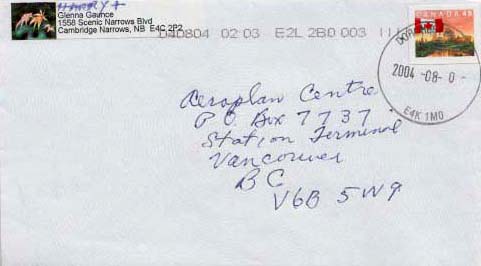 HARRY +
Glenna Gaunce
1558 Scenic Narrows Blvd
Cambridge Narrows, NB E4C 2P2
040804 02:03 E2L 2B0 003
CANADA 48
2004 -08- 0 -
E4K 1M0
Aeroplan Centre
P O Box 7737
Station Terminal
Vancouver
BC
V6B 5W9